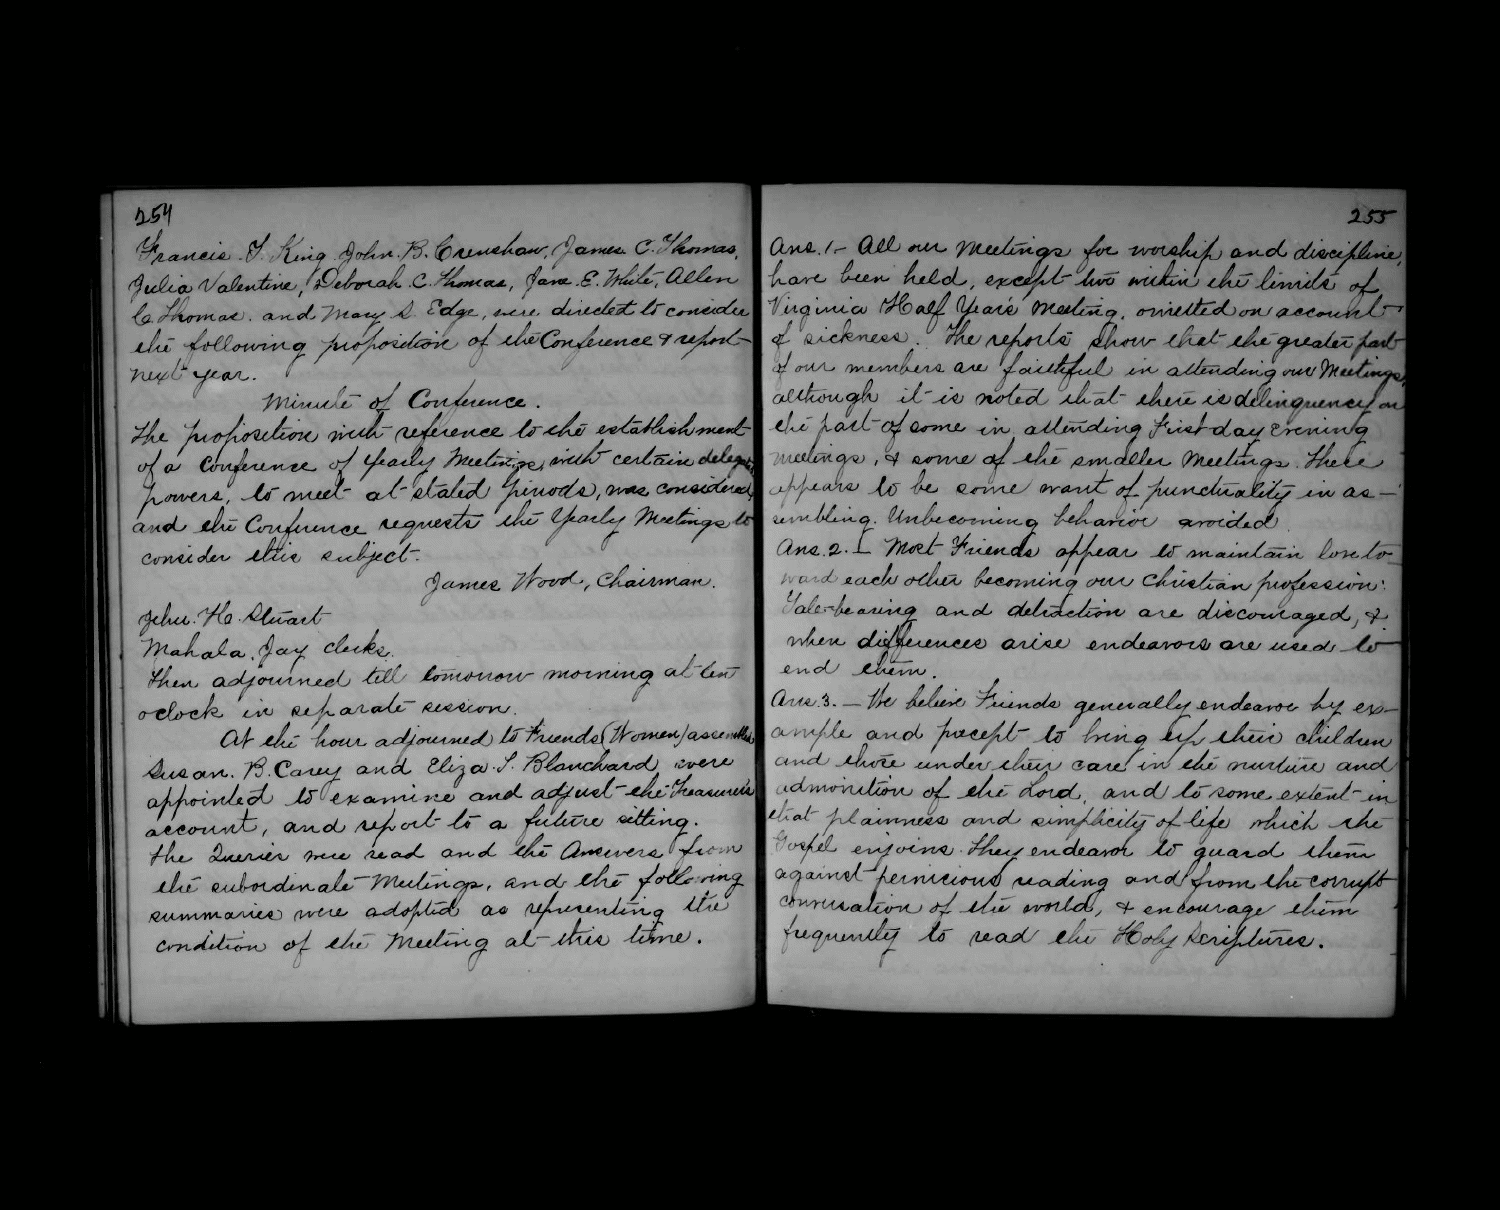 254
Francis T. King John B. Crenshaw, James C. Thomas,
Julia Valentine, Deborah C. Thomas, Jane E. White, Allen
C. Thomas. and Mary S. Edge, were directed to consider
the following proposition of the Conference & report
next year.
Minute of Conference.
The proposition with reference to the establishment
of a Conference of Yearly Meetings, with certain delegated
powers, to meet at stated periods, was considered,
and the Conference requests the Yearly Meetings to
consider this subject.
James Wood, Chairman.
John. H. Stuart
Mahala. Jay clerks.
Then adjourned till tomorrow morning at ten
oclock in separate session.
At the hour adjourned to Friends (Women) assembled
Susan. B. Carey and Eliza. S. Blanchard were
appointed to examine and adjust the Treasurer's
account, and report to a future sitting.
The Queries were read and the Answers from
the subordinate Meetings, and the following
summaries were adopted as representing the
condition of the Meeting at this time.
255
Ans. 1 - All our Meetings for worship and discipline,
have been held, except two within the limits of
Virginia Half Year's Meeting, omitted on account
of sickness. The reports show that the greater part
of our members are faithful in attending our Meetings,
although it is noted that there is delinquency on
the part of some in attending First day evening
meetings, & some of the smaller Meetings. There
appears to be some want of punctuality in as-
sembling. Unbecoming behavior avoided.
Ans. 2. - Most Friends appear to maintain love to-
ward each other becoming our Christian profession:
Tale-bearing and detraction are discouraged, &
when differences arise endeavors are used to
end them.
Ans. 3. - We believe Friends generally endeavor by ex-
ample and precept to bring up their children
and those under their care in the nurture and
admonition of the Lord, and to some extent in
that plainness and simplicity of life which the
Gospel enjoins. They endeavor to guard them
against pernicious reading and from the corrupt
conversation of the world, & encourage them
frequently to read the Holy Scriptures.